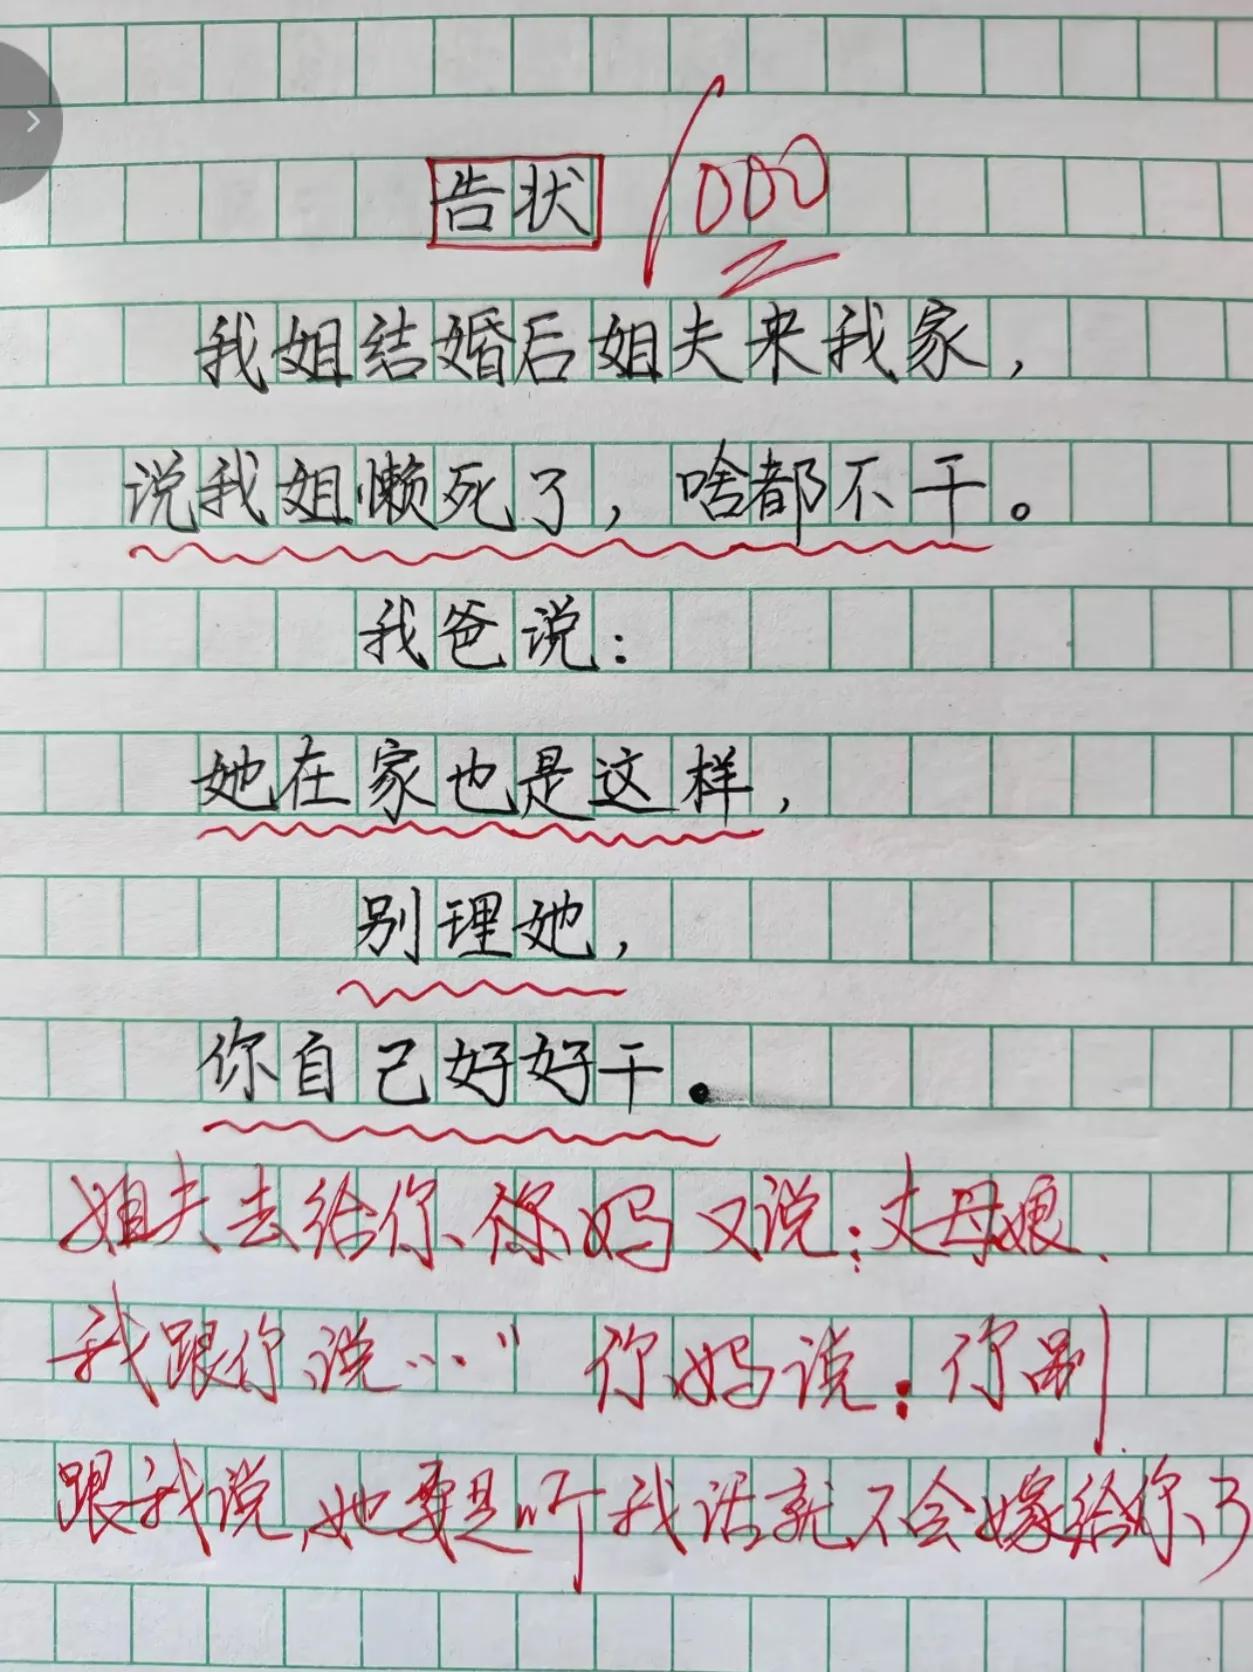 告状 1000
我姐结婚后姐夫来我家，
说我姐懒死了，啥都不干。
我爸说：
她在家也是这样，
别理她，
你自己好好干.
姐夫去给你、你妈又说：丈母娘、
我跟你说…" 你妈说：你别
跟我说，她要是听我话就不会嫁给你了